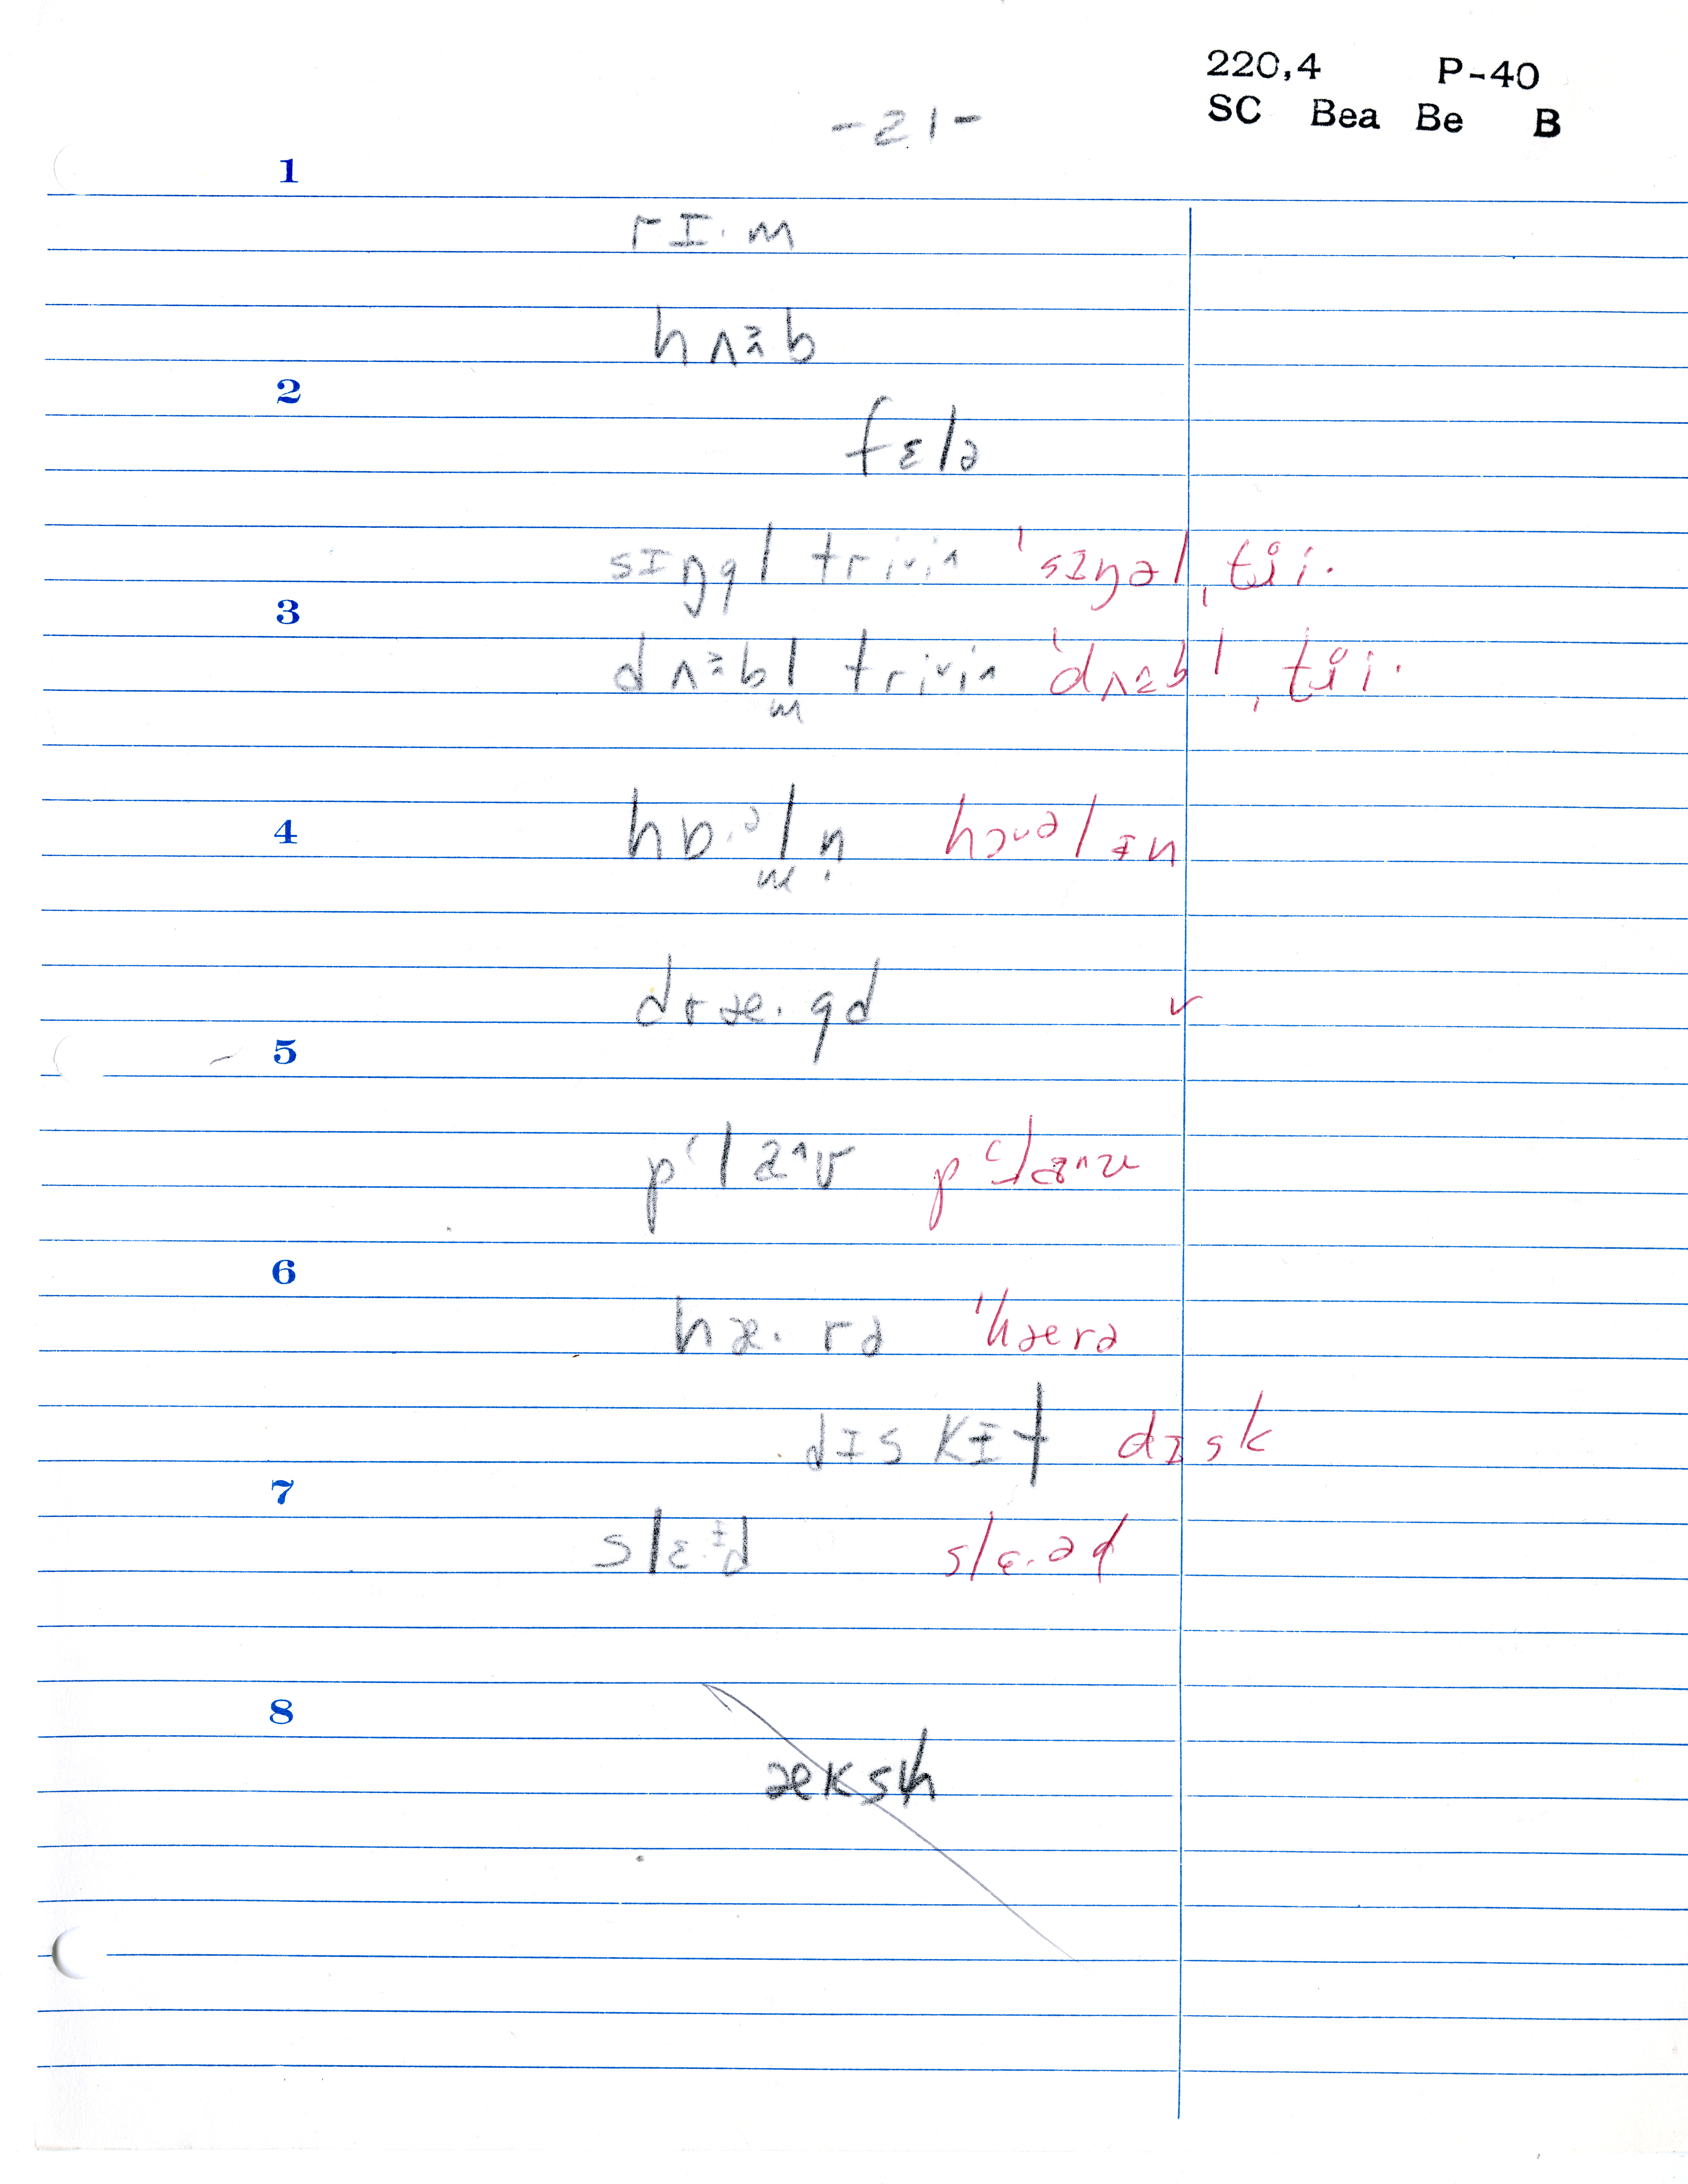 220,4 P-40
SC Bea Be B
-21-
1
rɪ·m
hʌᵊb
2
fɛlə
sɪŋgl triˇiˑ ˈsɪŋəl ˌtɹ̥i·
3
dʌᵊbl triˇiˑ ˈdʌᵊbl ˌtɹ̥i·
4
hɒ·ᵊl n̩ hɔᵘəlɪn
dræ·gd ✓
5
pʻlaᶺʊ pʻlaᶺu
6
hæ·rə ˈhærə
dɪskɪt dɪsk
7
slɛ·ᶦd slɛ·əd
8
æksḥ